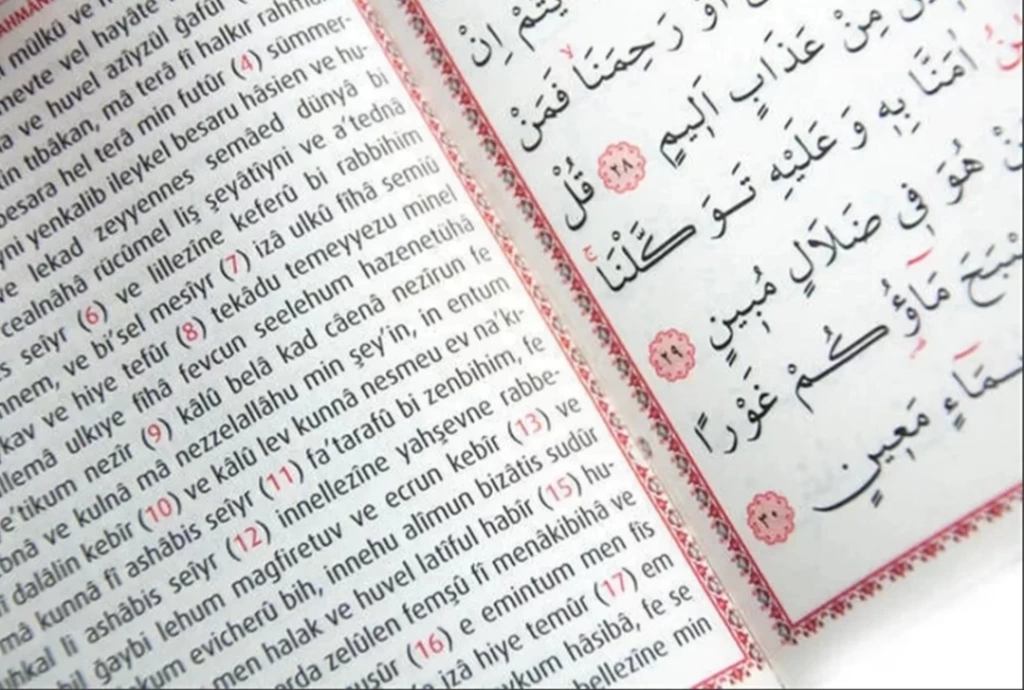 AHMÂN
mülkü ve h
mevte vel hayâte
a ve huvel azîyzül ğafûr
in tıbâkan, mâ terâ fî halkır rahmâ
besara hel terâ min futûr (4) sümmer-
yni yenkalib ileykel besaru hâsien ve hu-
ve lekad zeyyennes semâed dünyâ bi
cealnâhâ rücûmel liş şeyâtîyni ve a'tednâ
s seîyr (6) ve lillezîne keferû bi rabbihim
nnem, ve bi'sel mesîyr (7) izâ ulkû fîhâ semiû
kav ve hiye tefûr (8) tekâdu temeyyezu minel
llemâ ulkıye fîhâ fevcun seelehum hazenetühâ
e'tikum nezîr (9) kâlû belâ kad câenâ nezîrun fe
bnâ ve kulnâ mâ nezzelallâhu min şey'in, in entum
î dalâlin kebîr (10) ve kâlû lev kunnâ nesmeu ev na'kı-
mâ kunnâ fî ashâbis seîyr (11) fa'tarafû bi zenbihim, fe
uhkal li ashâbis seîyr (12) innellezîne yahşevne rabbe-
bil ğaybi lehum mağfiretuv ve ecrun kebîr (13) ve
kum evicherû bih, innehu alîmun bizâtis sudûr
men halak ve huvel latîful habîr (15) hu-
erda zelûlen femşû fî menâkibihâ ve
nuşûr (16) e emintum men fîs
e izâ hiye temûr (17) em
ykum hâsibâ, fe se
bellezîne min
يْتُمْ اِنْ
اَوْ رَحِمَنَا فَمَنْ
مِنْ عَذَابٍ اَلِيمٍ ٢٨ قُلْ
اٰمَنَّا بِهِ وَعَلَيْهِ تَوَكَّلْنَا
هُوَ فِى ضَلَالٍ مُبِينٍ ٢٩
مَاۤؤُكُمْ غَوْرًا
مَعِينٍ ٣٠